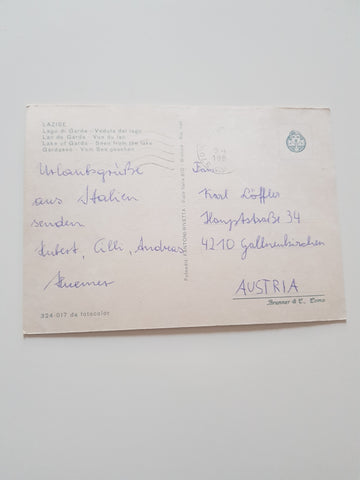 LAZISE
Lago di Garda - Veduta dal lago
Lac de Garde - Vue du lac
Lake of Garda - Seen from the lake
Gardasee - Vom See gesehen
Urlaubsgrüße
aus Italien
senden
Hubert, Cilli, Andreas
324-017 da fotocolor
Familie
Karl Löffler
Hauptstraße 34
4210 Gallneukirchen
AUSTRIA
Brunner & C., Como